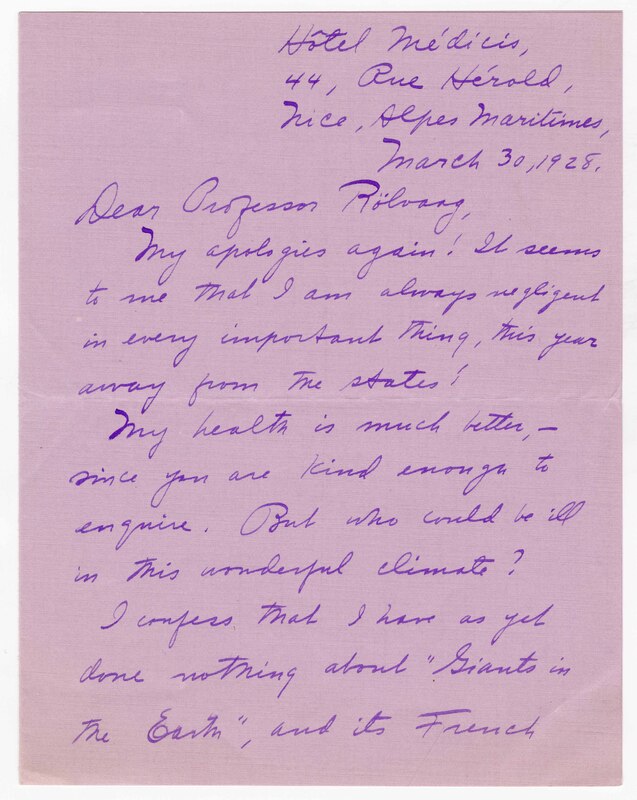 Hôtel Médicis,
44, Rue Hérold,
Nice, Alpes Maritimes,
March 30, 1928.
Dear Professor Rölvaag,
My apologies again! It seems
to me that I am always negligent
in every important thing, this year
away from the states!
My health is much better, –
since you are kind enough to
enquire. But who could be ill
in this wonderful climate?
I confess that I have as yet
done nothing about "Giants in
the Earth", and its French